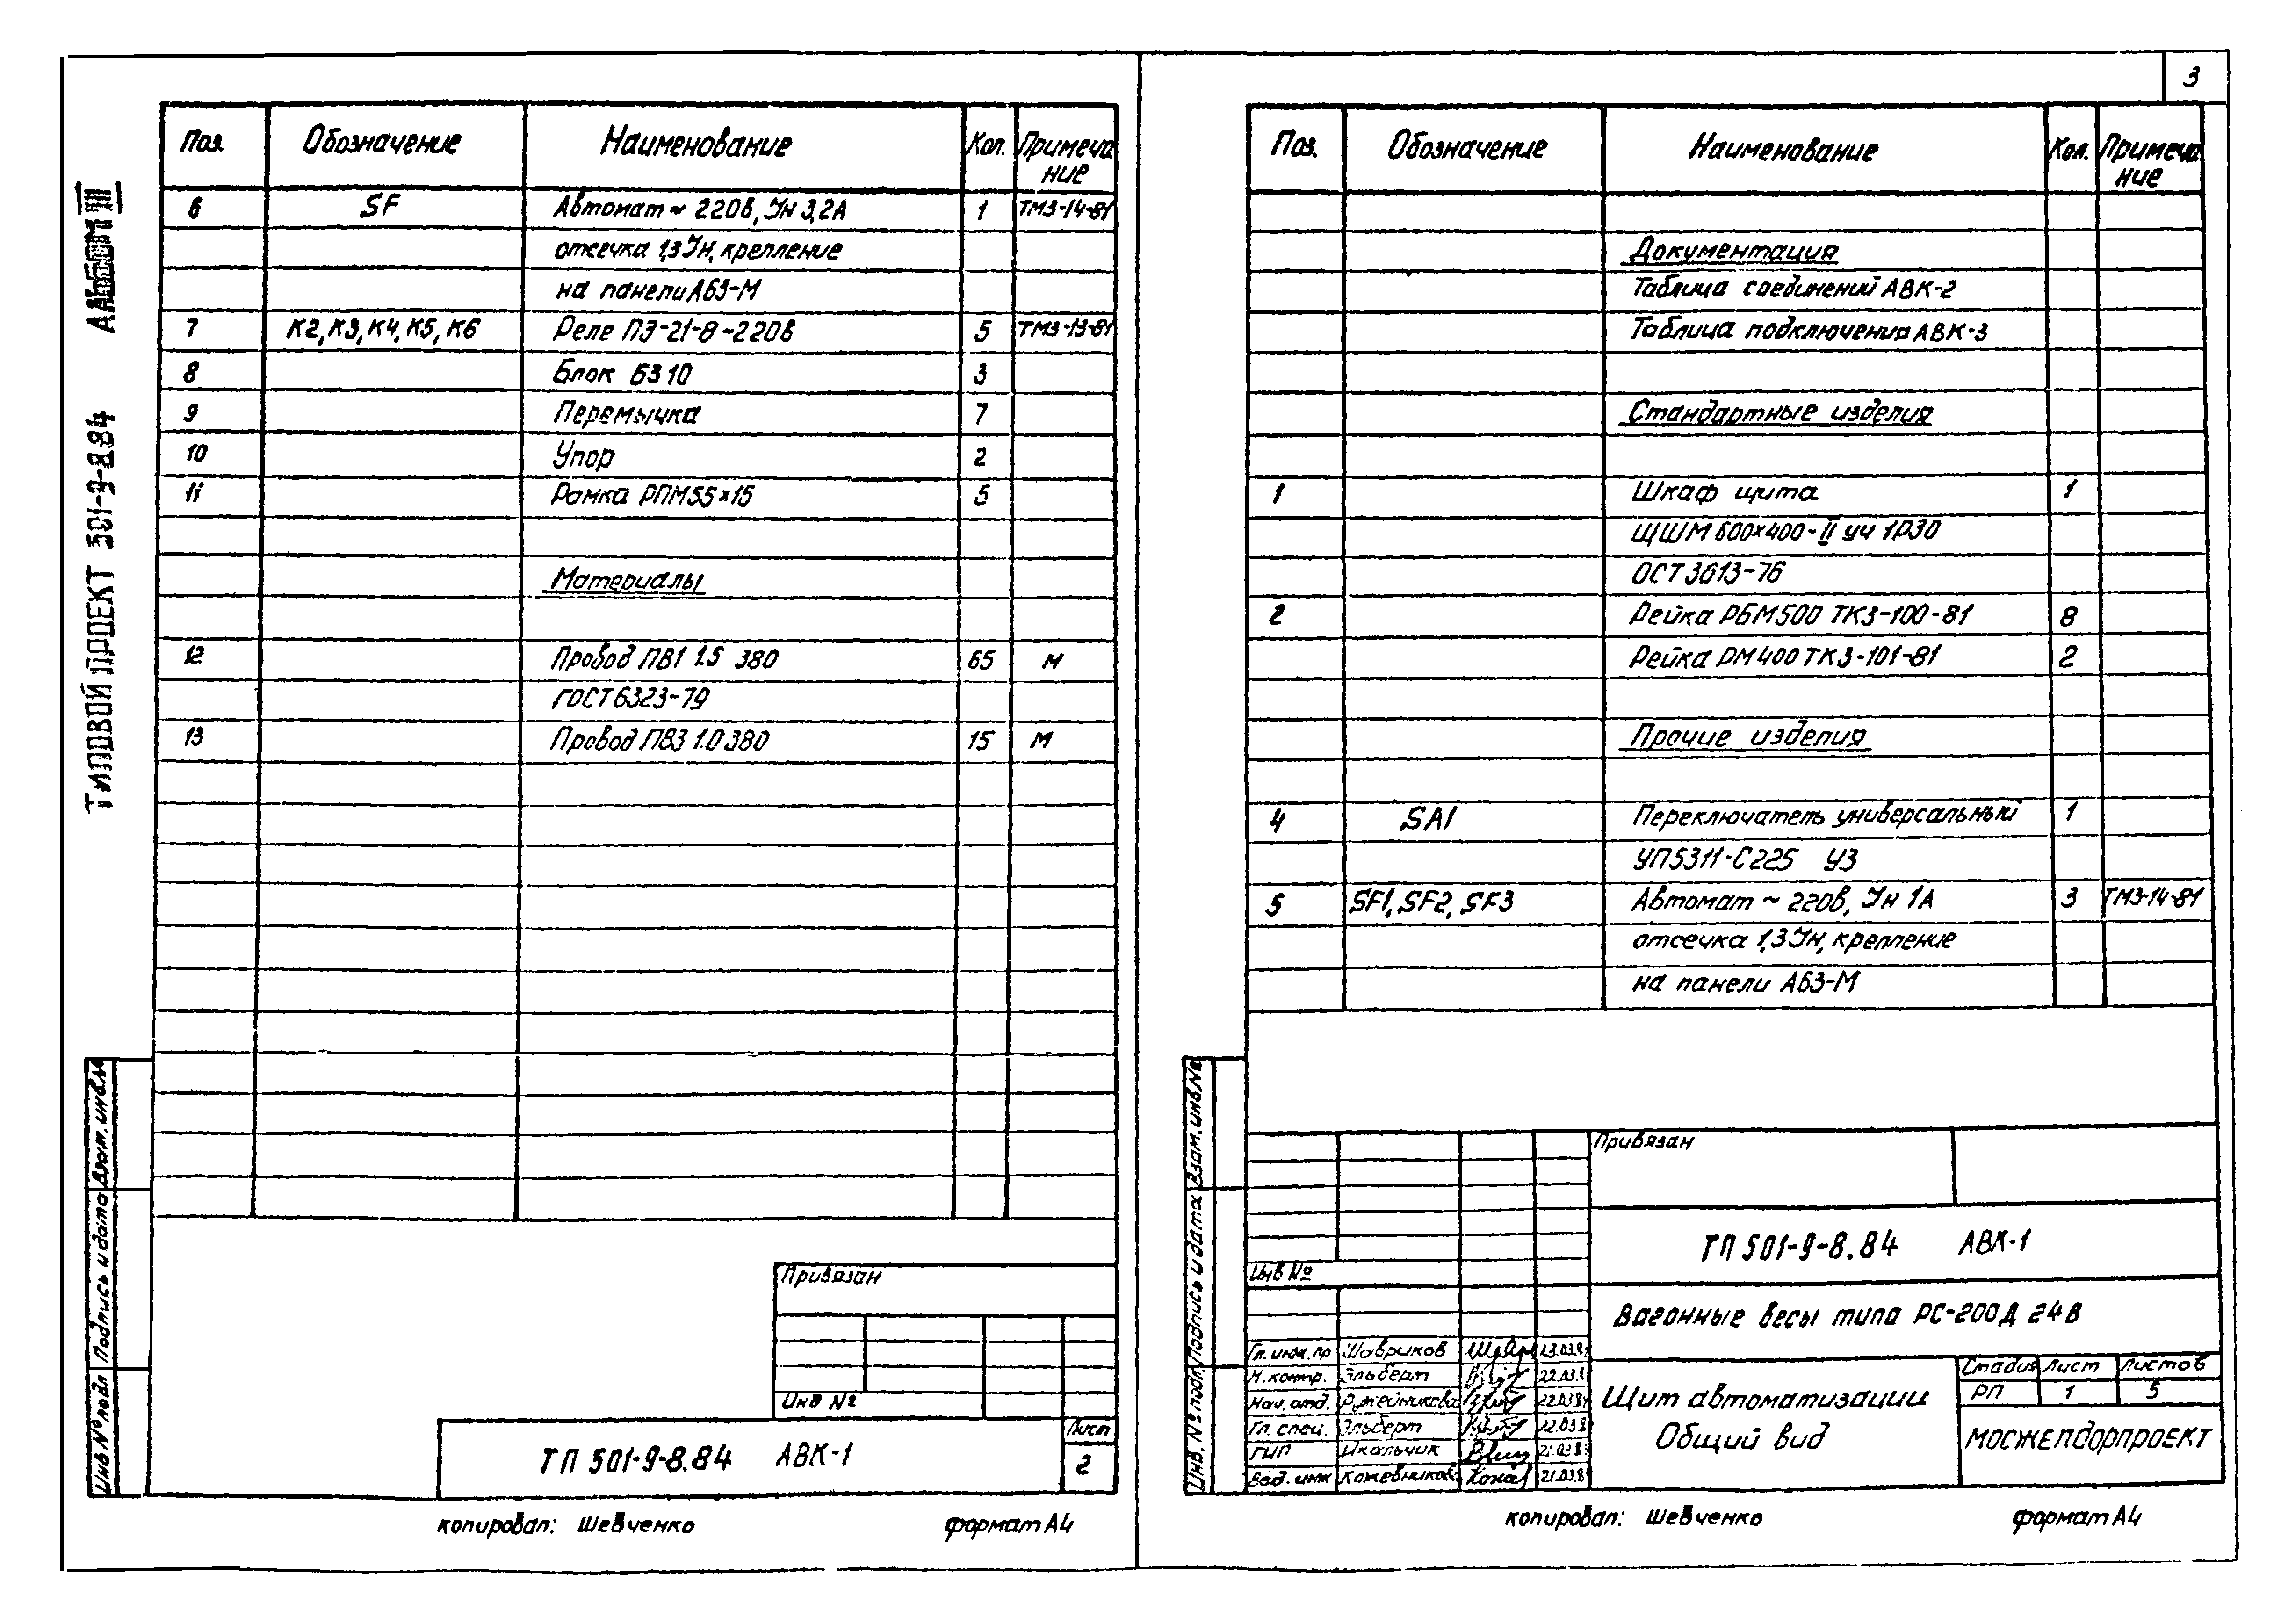 ТИПОВОЙ ПРОЕКТ 501-9-8.84 АЛЬБОМ III
Поз. Обозначение Наименование Кол. Примеча
ние
6 SF Автомат ~ 220в, Iн 3,2А 1 ТМ3-14-81
отсечка 1,3 Iн, крепление
на панели А63-М
7 К2, К3, К4, К5, К6 Реле ПЭ-21-8 ~220в 5 ТМ3-13-81
8 Блок БЗ 10 3
9 Перемычка 7
10 Упор 2
11 Рамка РПМ55×15 5
Материалы
12 Провод ПВ1 1.5 380 65 м
ГОСТ 6323-79
13 Провод ПВ3 1.0 380 15 м
Привязан
Инв №
ТП 501-9-8.84 АВК-1
Лист
2
Инв № подл Подпись и дата Взам. инв №
копировал: Шевченко формат А4
3
Поз. Обозначение Наименование Кол. Примеча
ние
Документация
Таблица соединений АВК-2
Таблица подключения АВК-3
Стандартные изделия
1 Шкаф щита 1
ЩШМ 600×400-II уч 1Р30
ОСТ 3613-76
2 Рейка РБМ500 ТК3-100-81 8
Рейка РМ400 ТК3-101-81 2
Прочие изделия
4 SA1 Переключатель универсальный 1
УП5311-С225 У3
5 SF1, SF2, SF3 Автомат ~ 220в, Iн 1А 3 ТМ3-14-81
отсечка 1,3 Iн, крепление
на панели А63-М
Инв. № подл. Подпись и дата Взам. инв. №
Привязан
Инв №
ТП 501-9-8.84 АВК-1
Вагонные весы типа РС-200Д 24В
Гл. инж. пр Шавриков 23.03.8
Н. контр. Эльберт 22.03.8
Нач. отд. Ружейникова 22.03.84
Гл. спец. Эльберт 22.03.8
ГИП Икальчик 21.03.8
Вед. инж Кожевникова 21.03.8
Щит автоматизации
Общий вид
Стадия Лист Листов
РП 1 5
МОСЖЕЛДОРПРОЕКТ
копировал: Шевченко формат А4